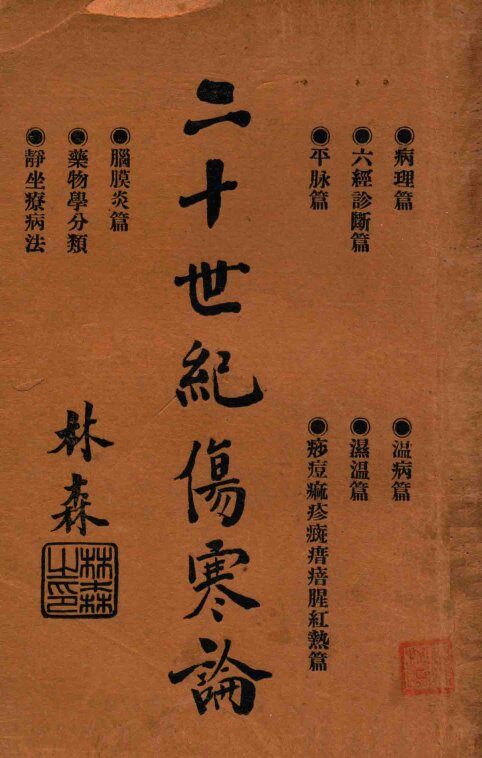 病理篇
六經診斷篇
平脉篇
温病篇
濕温篇
痧痘痲疹㾦瘄㾦腥紅熱篇
二十世紀傷寒論
腦膜炎篇
藥物學分類
靜坐療病法
林森
林森之印